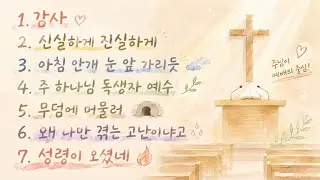 1. 감사
2. 신실하게 진실하게
3. 아침 안개 눈 앞 가리듯
4. 주 하나님 독생자 예수
5. 무덤에 머물러
6. 왜 나만 겪는 고난이냐고
7. 성령이 오셨네
주님이
예배의 중심!